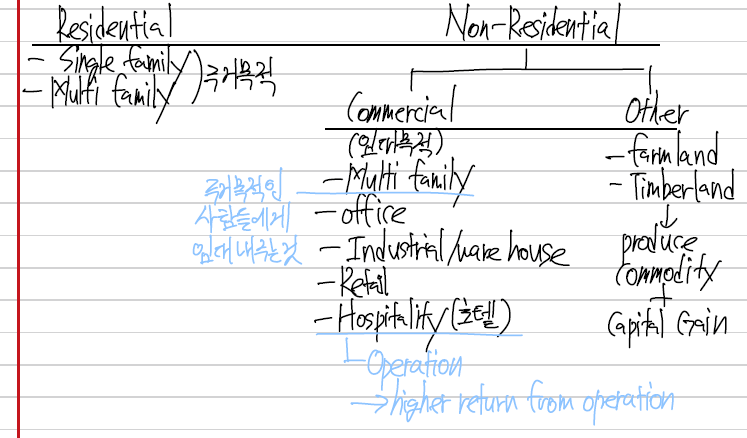 Residential
- Single family
- Multi family
) 주거목적
Non-Residential
Commercial
(임대목적)
- Multi family
주거목적인
사람들에게
임대내주는것
- office
- Industrial/ware house
- Retail
- Hospitality (호텔)
Operation
→ higher return from operation
Other
- farmland
- Timberland
↓
produce
Commodity
+
Capital Gain